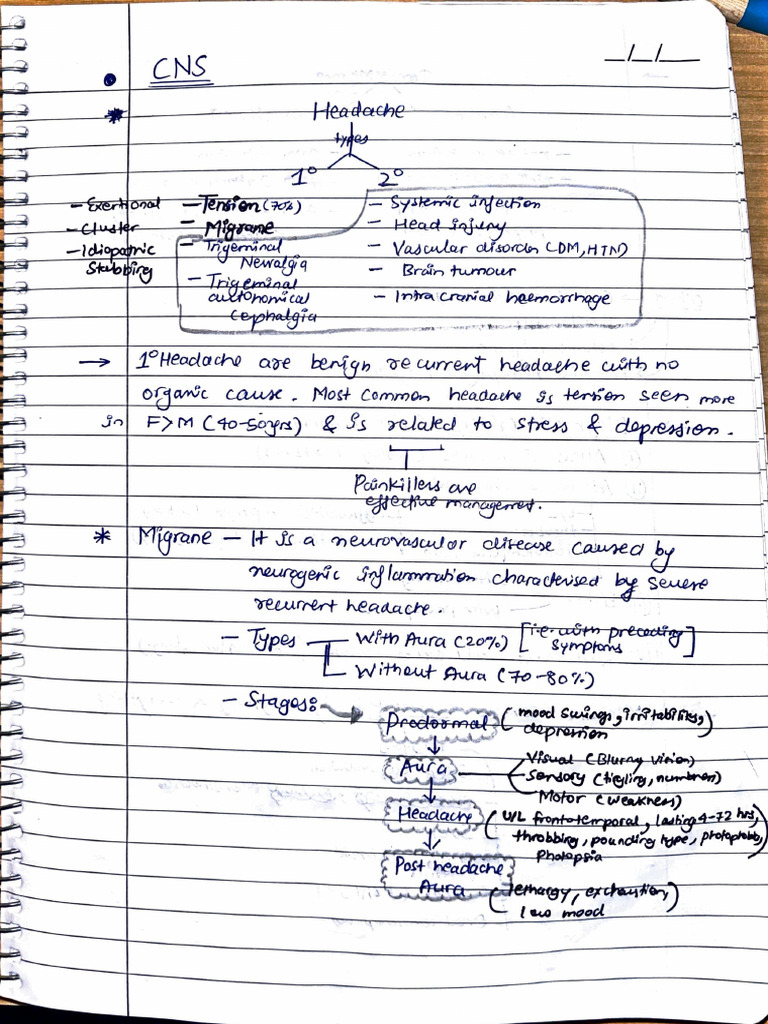 __/__/__
CNS
Headache
types
1° 2°
- Exertional
- Cluster
- Idiopathic
Stabbing
- Tension (70%)
- Migrane
- Trigeminal
Neuralgia
- Trigeminal
autonomical
cephalgia
- Systemic infection
- Head injury
- Vascular disorder (DM, HTN)
- Brain tumour
- Intra cranial haemorrhage
→ 1° Headache are benign recurrent headache with no
organic cause. Most common headache is tension seen more
in F>M (40-50yrs) & is related to stress & depression.
Painkillers are
effective management.
* Migrane - It is a neurovascular disease caused by
neurogenic inflammation characterised by severe
recurrent headache.
- Types With Aura (20%) [i.e. with preceding
symptoms]
Without Aura (70-80%)
- Stages: →
Prodormal (mood swings, irritability,
depression)
↓
Aura
Visual (Blurry vision)
Sensory (tingling, numbness)
Motor (weakness)
↓
Headache (U/L frontotemporal, lasting 4-72 hrs,
throbbing, pounding type, photophobia,
Photopsia)
↓
Post headache
Aura (lethargy, exhaustion,
low mood)